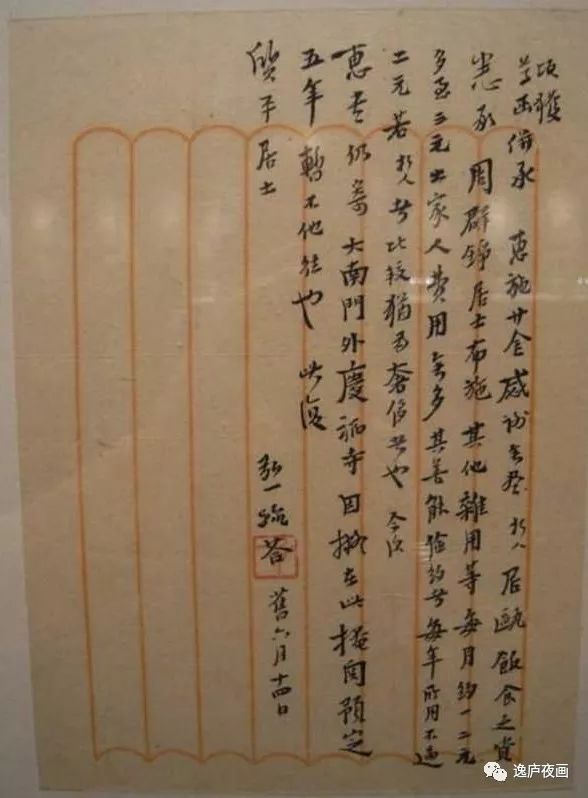 頃獲
尊函併承 惠施廿金感謝無盡 朽人居甌飲食之資
悉承 周群錚居士布施 其他雜用等每月約一二元
多至三元出家人費用無多其善能儉約者每年所用不過
二元若朽人者比較猶為奢侈者也 今後
惠書仍寄 大南門外慶福寺因擬在此掩關預定
五年 暫不他往也 此復
質平居士
弘一 答
舊六月十四日
逸庐夜画